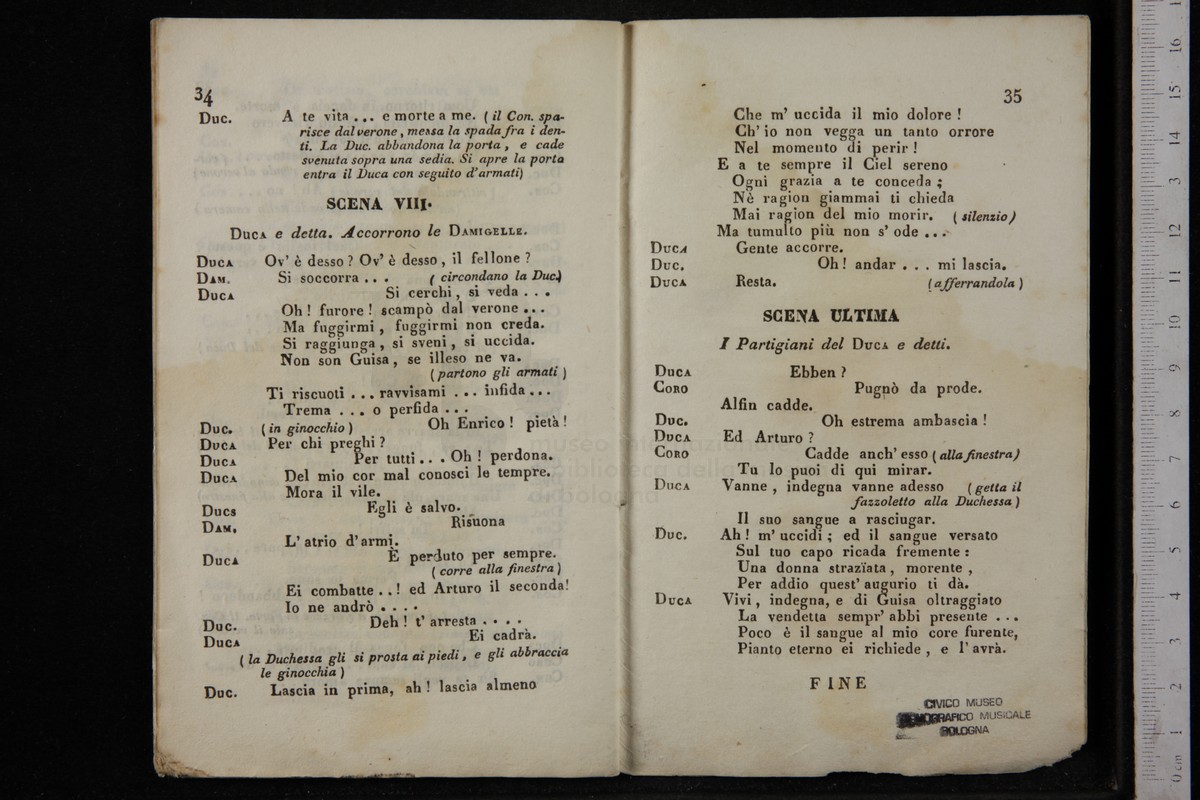 34
Duc. A te vita ... e morte a me. ( il Con. spa-
risce dal verone, messa la spada fra i den-
ti. La Duc. abbandona la porta, e cade
svenuta sopra una sedia. Si apre la porta
entra il Duca con seguito d'armati)
SCENA VIII.
Duca e detta. Accorrono le Damigelle.
Duca Ov' è desso? Ov' è desso, il fellone?
Dam. Si soccorra ... ( circondano la Duc.)
Duca Si cerchi, si veda ...
Oh! furore! scampò dal verone ...
Ma fuggirmi, fuggirmi non creda.
Si raggiunga, si sveni, si uccida.
Non son Guisa, se illeso ne va.
(partono gli armati)
Ti riscuoti ... ravvisami ... infida ...
Trema ... o perfida ...
Duc. (in ginocchio) Oh Enrico! pietà!
Duca Per chi preghi?
Duca Per tutti... Oh! perdona.
Duca Del mio cor mal conosci le tempre.
Mora il vile.
Ducs Egli è salvo.
Dam. Risuona
L' atrio d' armi.
Duca È perduto per sempre.
( corre alla finestra )
Ei combatte ..! ed Arturo il seconda!
Io ne andrò ....
Duc. Deh! t' arresta ....
Duca Ei cadrà.
( la Duchessa gli si prosta ai piedi, e gli abbraccia
le ginocchia )
Duc. Lascia in prima, ah! lascia almeno
35
Che m' uccida il mio dolore!
Ch' io non vegga un tanto orrore
Nel momento di perir!
E a te sempre il Ciel sereno
Ogni grazia a te conceda;
Nè ragion giammai ti chieda
Mai ragion del mio morir. ( silenzio)
Ma tumulto più non s' ode ...
Duca Gente accorre.
Duc. Oh! andar ... mi lascia.
Duca Resta. (afferrandola)
SCENA ULTIMA
I Partigiani del Duca e detti.
Duca Ebben?
Coro Pugnò da prode.
Alfin cadde.
Duc. Oh estrema ambascia!
Duca Ed Arturo?
Coro Cadde anch' esso (alla finestra)
Tu lo puoi di qui mirar.
Duca Vanne, indegna vanne adesso (getta il
fazzoletto alla Duchessa)
Il suo sangue a rasciugar.
Duc. Ah! m' uccidi; ed il sangue versato
Sul tuo capo ricada fremente:
Una donna strazïata, morente,
Per addio quest' augurio ti dà.
Duca Vivi, indegna, e di Guisa oltraggiato
La vendetta sempr' abbi presente ...
Poco è il sangue al mio core furente,
Pianto eterno ei richiede, e l' avrà.
FINE
CIVICO MUSEO
MUSICALE
BOLOGNA